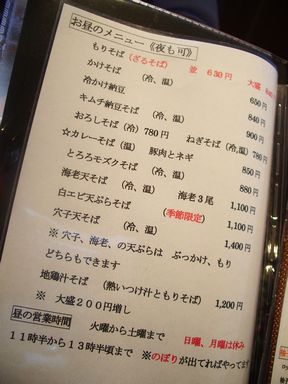 お昼のメニュー《夜も可》
もりそば(ざるそば) 並 630円 大盛
かけそば (冷、温) 650円
冷かけ納豆 840円
キムチ納豆そば (冷、温) 900円
おろしそば(冷)780円 ねぎそば(冷、温) 780円
☆カレーそば(温) 豚肉とネギ 850円
とろろモズクそば (冷、温) 880円
海老天そば (冷、温) 海老3尾 1,100円
白エビ天ぷらそば (季節限定) 1,100円
穴子天そば (冷、温) 1,400円
※ 穴子、海老、の天ぷらは ぶっかけ、もり
どちらもできます
地鶏汁そば (熱いつけ汁ともりそば) 1,200円
※ 大盛200円増し
昼の営業時間 火曜から土曜まで 日曜、月曜は休み
11時半から13時半頃まで ※のぼりが出てればやってます